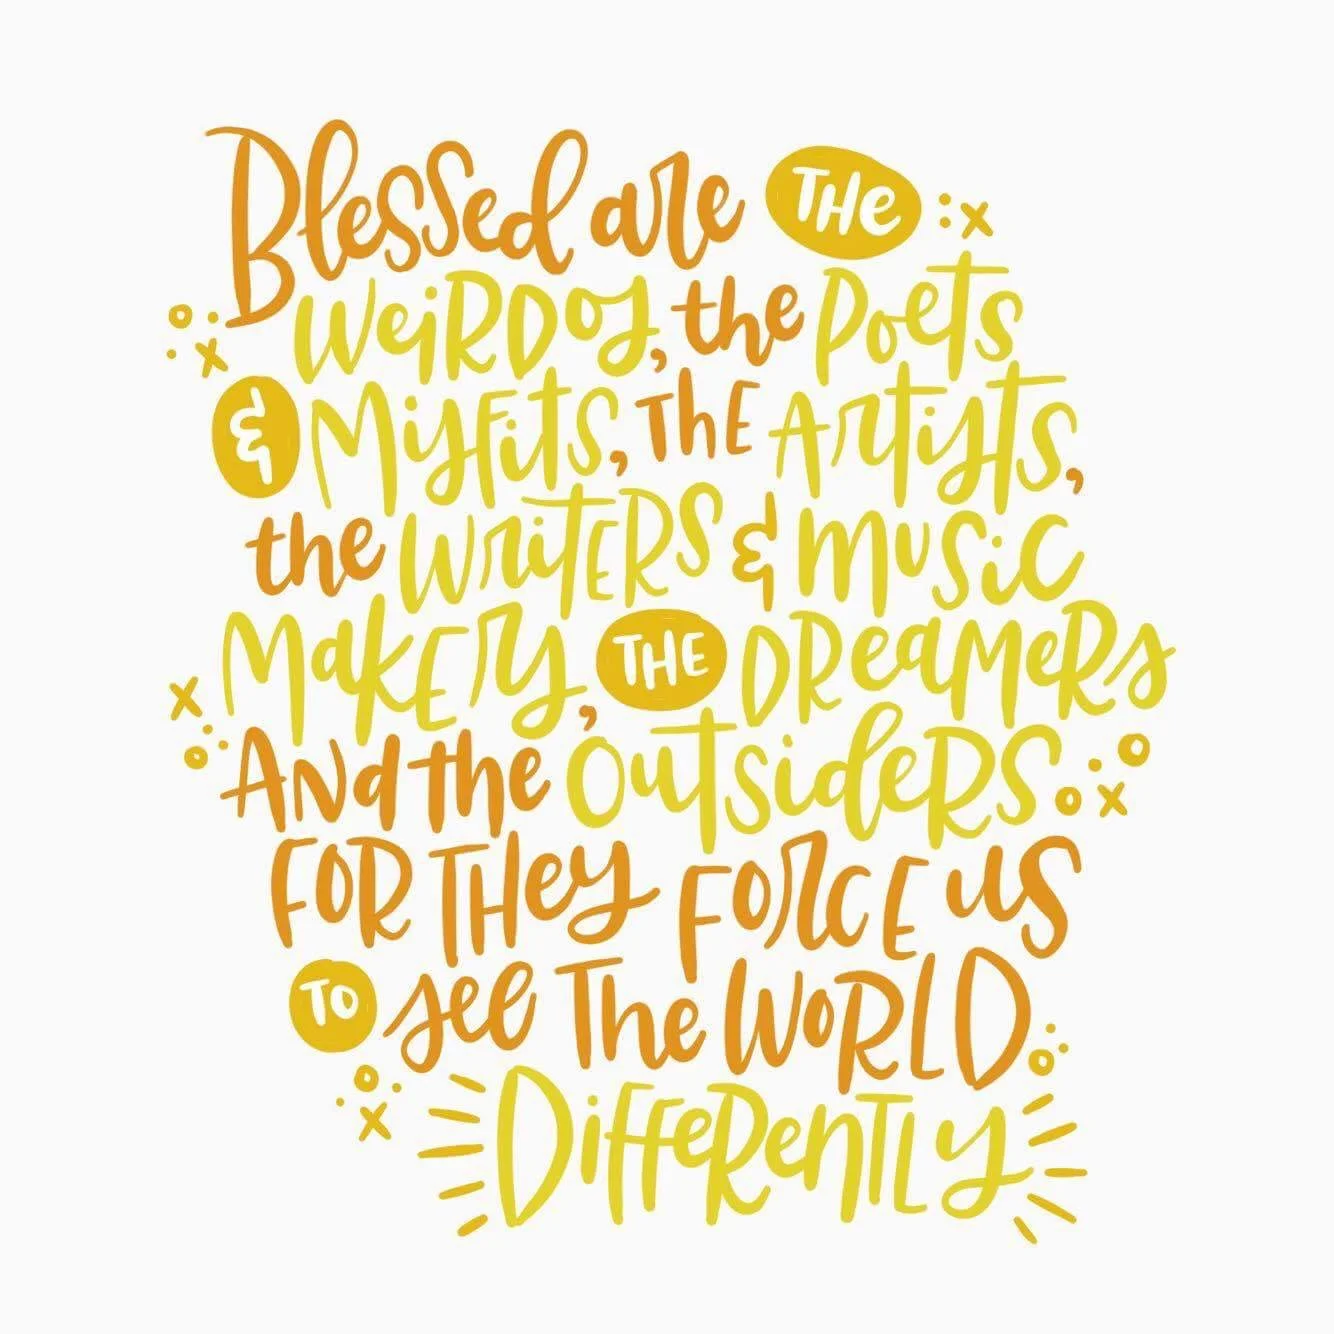 Blessed are THe
WeiRDos, the Poets
& Misfits, THE Artists,
the WriTERS & Music
MakErs, THE DReaMeRs
ANd the OutsideRS
FOR THey FORCE us
TO see The WORLD
DiffeRenTLy